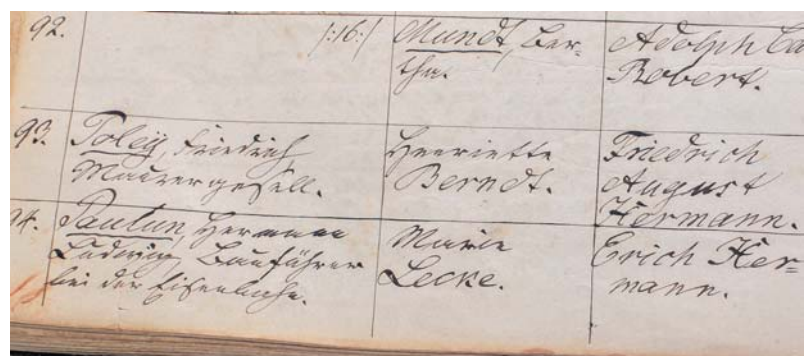 92.
/:16:/
Mundt, Ber-
tha.
Adolph Ca
Robert.
93.
Poley, Friedrich,
Maurergesell.
Henriette
Berndt.
Friedrich
August
Hermann.
94.
Paulun, Hermann
Ludwig, Bauführer
bei der Eisenbahn.
Marie
Lecke.
Erich Her-
mann.